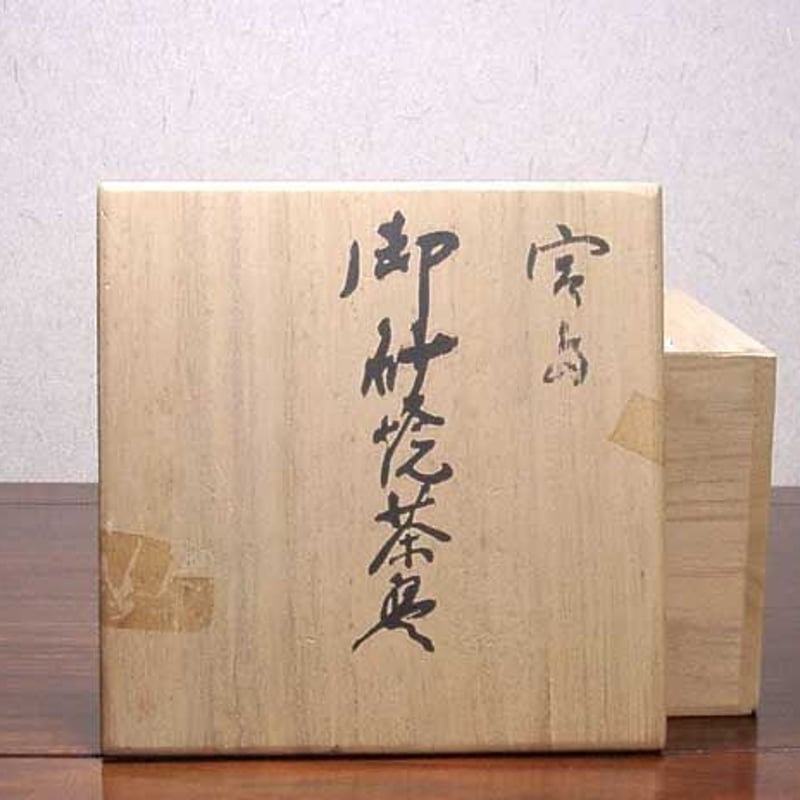 宮島
御砂焼茶碗